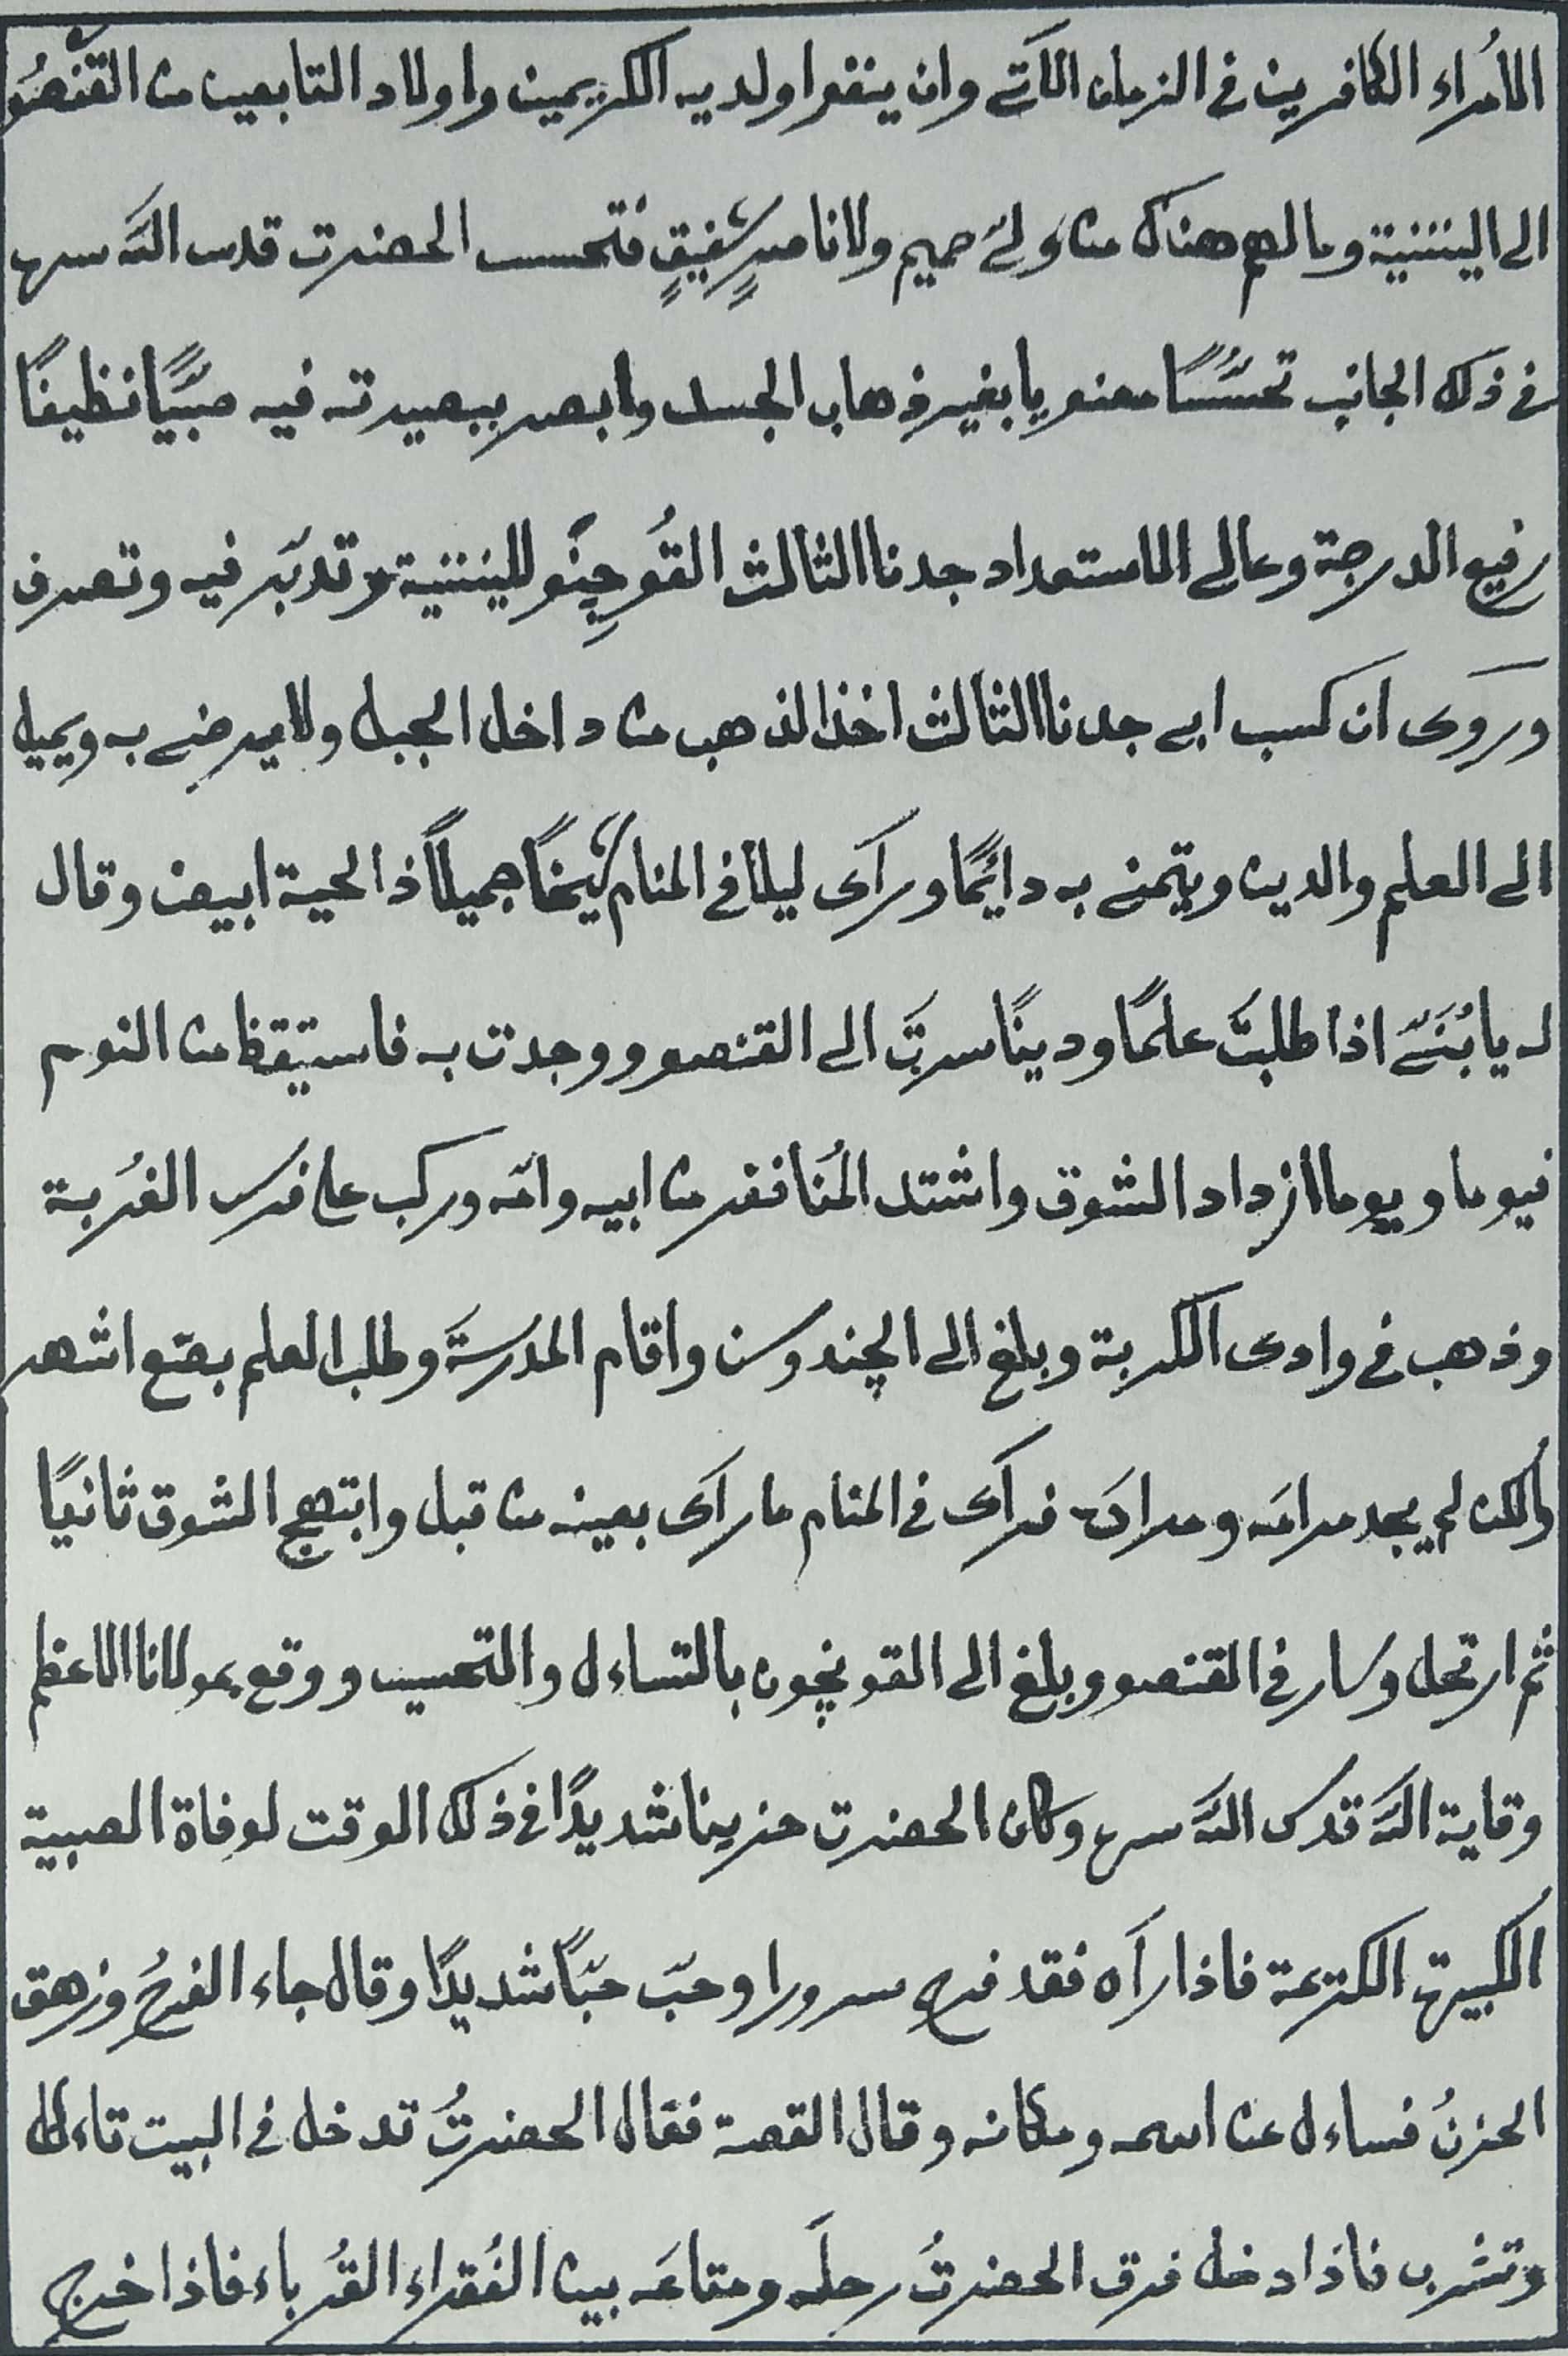 الأمراء الكافرين في الزمان الآتي وان ينفوا ولديه الكريمين واولاد التابعين من القنصو
الى الينننية وما لهم هناك من ولي حميم ولا ناصر شفيق فتحسس الحضرت قدس الله سره
في ذلك الجانب تحسّسًا معنويا بغير ذهاب الجسد وابصر ببصيرته فيه صبيًّا نظيفًا
رفيع الدرجة وعالى الاستعداد جدنا الثالث القُوجِنَو للينننية وتدبّر فيه وتصرف
وروى ان كسب ابي جدنا الثالث اخذ الذهب من داخل الجبل ولا يرضى به ويميل
الى العلم والدين ويتمنى به دائمًا ورآى ليلا في المنام شيخًا جميلاً ذا لحية ابيض وقال
له يا بُنَيَّ اذا طلبتَ علمًا ودينًا سرتَ الى القنصو ووجدت به فاستيقظ من النوم
فيوما ويوما ازداد الشوق واشتد المُنا ففر من ابيه وامّه وركب على فرس الغُربة
وذهب في وادى الكربة وبلغ الى الچندوسن واقام المدرسةَ وطلب العلم بضع اشهر
ولكن لم يجد مرامَه ومرادَه فرآى في المنام ما رآى بعينه من قبل وابتهج الشوق ثانيًا
ثم ارتحل وسار في القنصو وبلغ الى القونچون بالتساءل والتحسب ووقع بمولانا الاعظم
وقاية الله قدس الله سره وكان الحضرت حزينا شديدًا في ذلك الوقت لوفاة الصبية
الكبيرة الكريمة فاذا رآه فقد فرح سرورا وحبّ حبًّا شديدًا وقال جاء الفرحُ وزهق
الحزنُ فساءل عن اسمه ومكانه وقال القصة فقال الحضرتُ تدخل في البيت تاءكل
وتشرب فاذا دخل فرق الحضرتُ رحلَه ومتاعَه بين الفُقراء القُرباء فاذا خرج